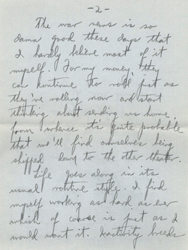 - 2 -
The war news is so
damn good these days that
I hardly believe most of it
myself. For my money, they
can continue to roll just as
they're rolling now and start
thinking about sending us home.
From evidence its quite probable
that we'll find ourselves being
shipped being to the other theater.
Life goes along in its
usual routine style. I find
myself working as hard as ever
which of course is just as I
would want it. Inactivity breeds